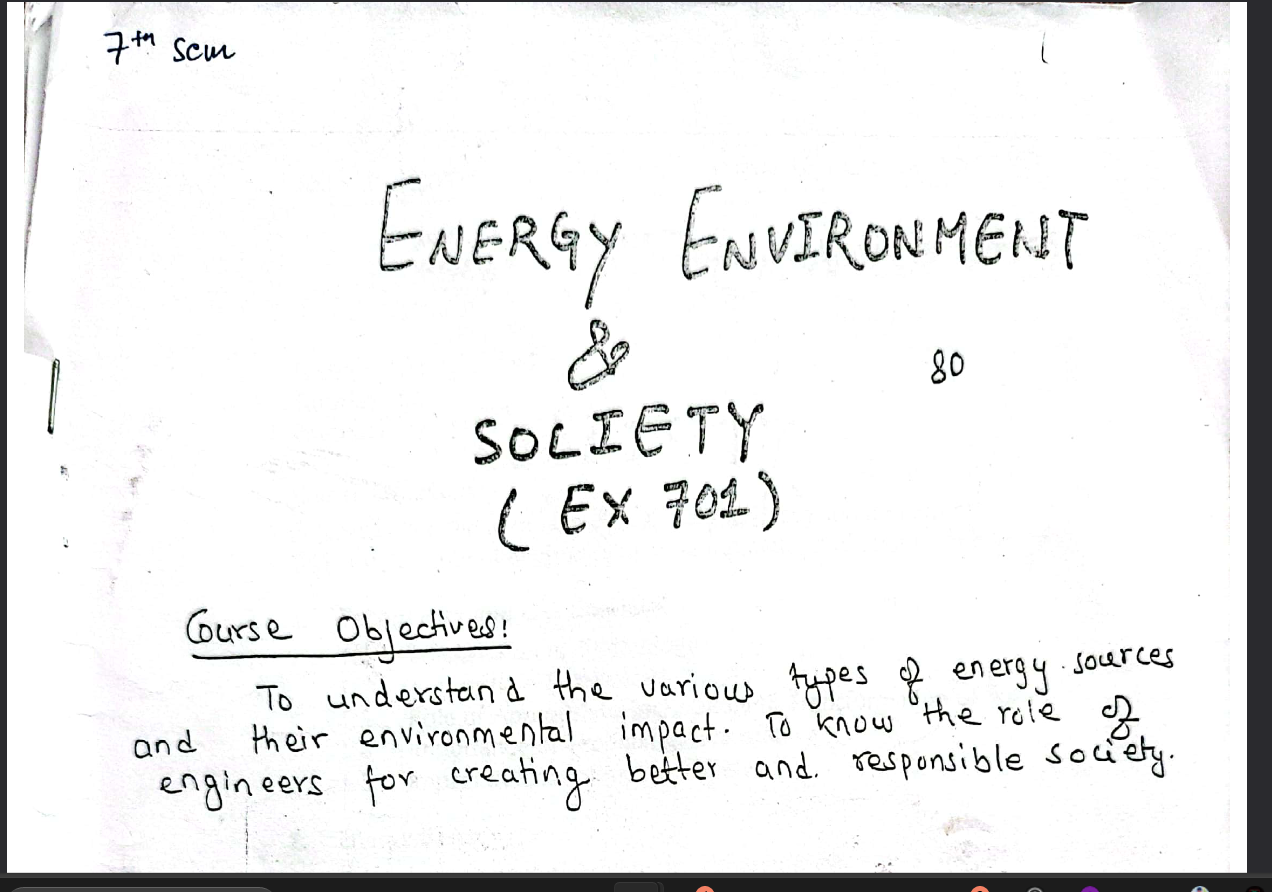 7th sem
1
ENERGY ENVIRONMENT
&
80
SOCIETY
(EX 701)
Course Objectives:
To understand the various types of energy sources
and their environmental impact. To know the role of
engineers for creating better and responsible society.